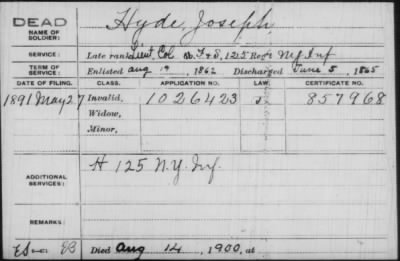 DEAD
NAME OF SOLDIER: Hyde, Joseph
SERVICE: Late rank Lieut. Col Co. F & S, 125 Reg't N.Y. Inf
TERM OF SERVICE: Enlisted Aug 19, 1862 Discharged June 5, 1865
DATE OF FILING. CLASS. APPLICATION NO. LAW. CERTIFICATE NO.
1891 May 27 Invalid, 1026423 857968
Widow,
Minor,
ADDITIONAL SERVICES: H 125 N.Y. Inf.
REMARKS:
Died Aug 14, 1900, at